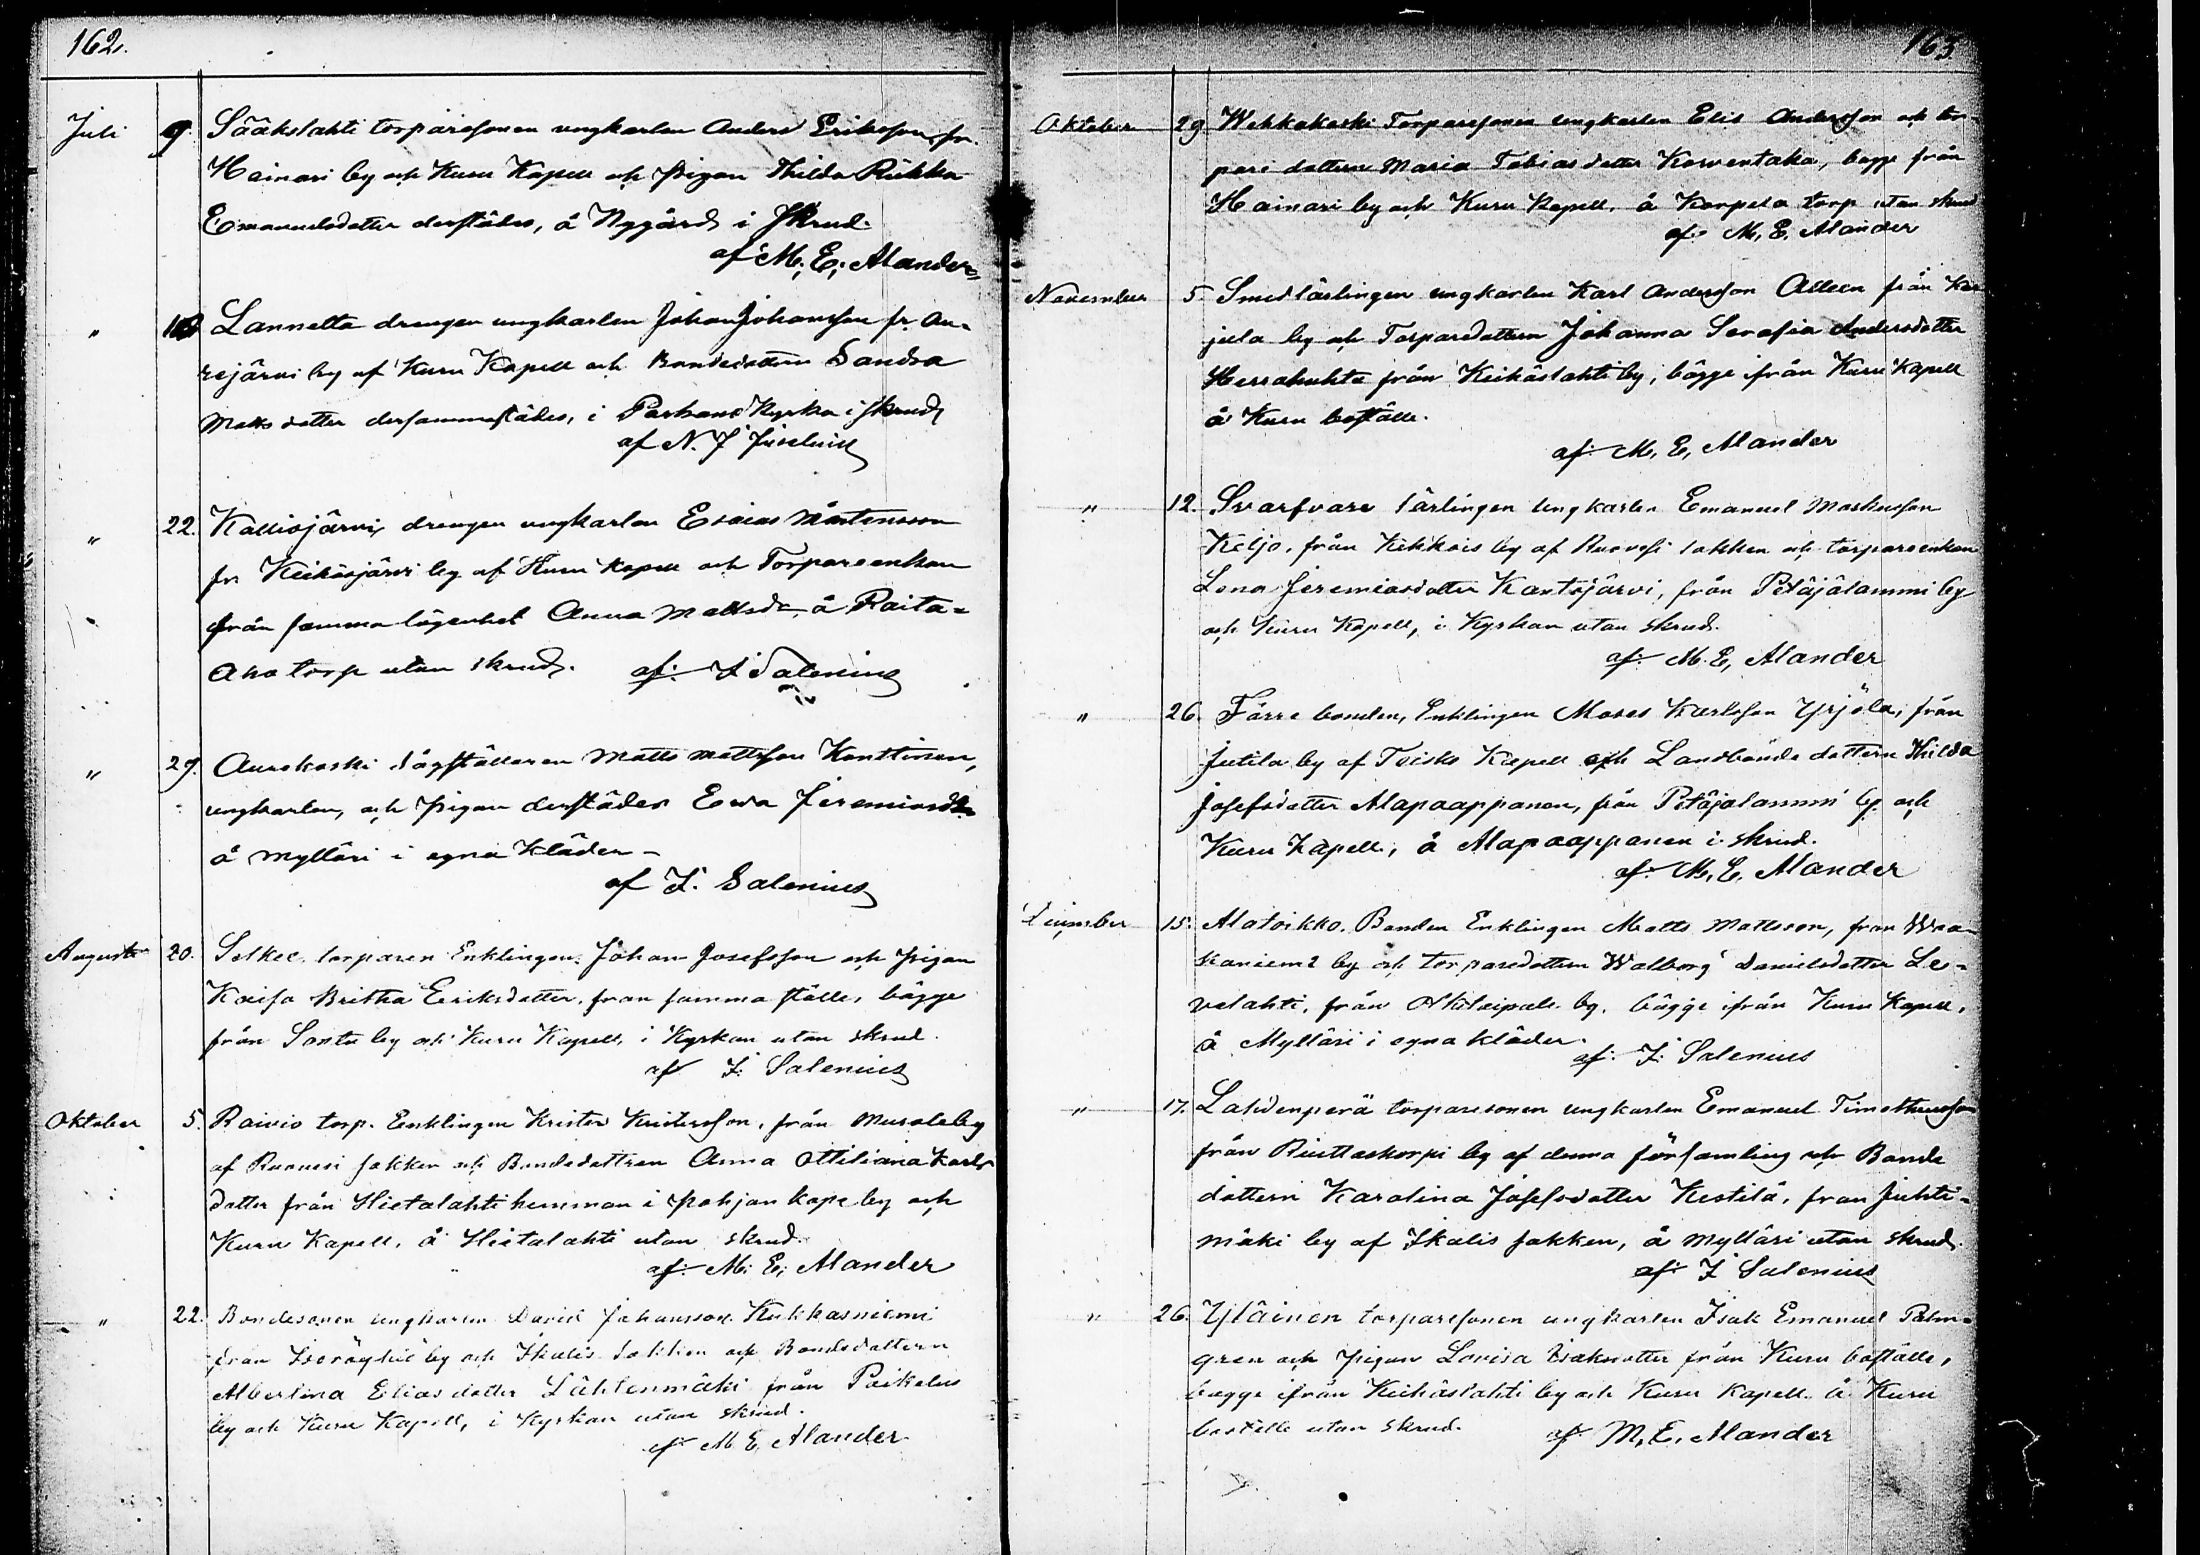 162.
Juli 9. Sääkslahti torparesonen ungkarlen Anders Eriksson fr.
Hainari by och Kuru Kapell och pigan Thilda Riikka
Emanuelsdotter derstädes, å Nygård i Skrud.
af M. E. Alander
" Lannetta drengen ungkarlen Johan Johansson fr. Au-
rejärvi by af Kuru Kapell och Bondedottern Sandra
Matts dotter dersammastädes, i Parkano Kyrka i skrud
af N. J.
" 22. Kalliojärvi, drengen ungkarlen Esaias Mårtensson
fr. Keihäsjärvi by af Kuru Kapell och Torpareenkan
från samma lägenhet Anna Mattsdr. å Raita-
aho torp utan skrud. af: J Salenius
" 29. Aurekoski sågställaren Matts Mattsson Konttinen,
ungkarlen, och pigan derstädes Ewa Jeremiasdr
å Mylläri i egna Kläder –
af J. Salenius
Augusti 20. Selkee torparen Enklingen Johan Josefsson och pigan
Kaisa Britha Eriksdotter, från samma ställe, bägge
från Sontu by och Kuru Kapell, i Kyrkan utan skrud.
af J. Salenius
Oktober 5. Raivio torp. Enklingen Krister Kristersson, från Muroleby
af Ruovesi sokken och Bondedottren Anna Ottiliana Karls
dotter från Hietalahti hemman i Pohjankapeby och
Kuru Kapell, å Hietalahti utan skrud.
af. M. E. Alander
" 22. Bondesonen ungkarlen David Johansson Kukkasniemi
från Isoröyhiö by och Ikalis sokken och Bondedottern
Albertina Elias dotter Lähtenmäki från Poikelus
by och Kuru Kapell, i Kyrkan utan skrud.
af M. E. Alander
163
Oktober 29 Wehkakoski Torparesonen ungkarlen Elis Andersson och tor-
pare dottern Maria Tobias dotter Korventaka, bägge från
Hainari by och Kuru Kapell, å Korpela torp utan skrud
af. M. E. Alander
November 5 Smedlärlingen ungkarlen Karl Andersson Alleen från
jula by och Torparedottern Johanna Serafia Andersdotter
Herrakuhta från Keihäslahti by, bägge ifrån Kuru Kapell
å Kuru boställe.
af. M. E. Alander
" 12. Svarfvare lärlingen ungkarlen Emanuel Markusson
Keljo, från Kekkois by af Ruovesi sokken och torpareenkan
Lena Jeremiasdotter Kantojärvi, från Petäjälammi by
och Kuru Kapell, i Kyrkan utan skrud.
af. M. E. Alander
" 26. Förre bonden, Enklingen Moses Karlsson Yrjölä, från
Jutila by af Teisko Kapell och Landbonde dottern Hilda
Josefsdotter Alapaappanen, från Petäjälammi by och
Kuru Kapell, å Alapaappanen i skrud.
af. M. E. Alander
December 15. Alatoikko. Bonden Enklingen Matts Mattsson, från Waa-
kaniemi by och torparedottern Walborg Danielsdotter Le-
välahti, från Olkitaipale by, bägge ifrån Kuru Kapell,
å Mylläri i egna kläder.
af. J. Salenius
" 17. Lahdenperä torparesonen ungkarlen Emanuel Timotheusson
från Riuttaskorpi by af denna församling och Bonde
dottern Karolina Josefsdotter Kestilä, från Juhti-
mäki by af Ikalis sokken, å Mylläri utan skrud.
af. J Salenius
" 26. Yläinen torparesonen ungkarlen Isak Emanuel Palm-
gren och pigan Lovisa Isaksdotter från Kuru boställe,
bägge ifrån Keihäslahti by och Kuru Kapell å Kuru
boställe utan skrud.
af. M. E. Alander